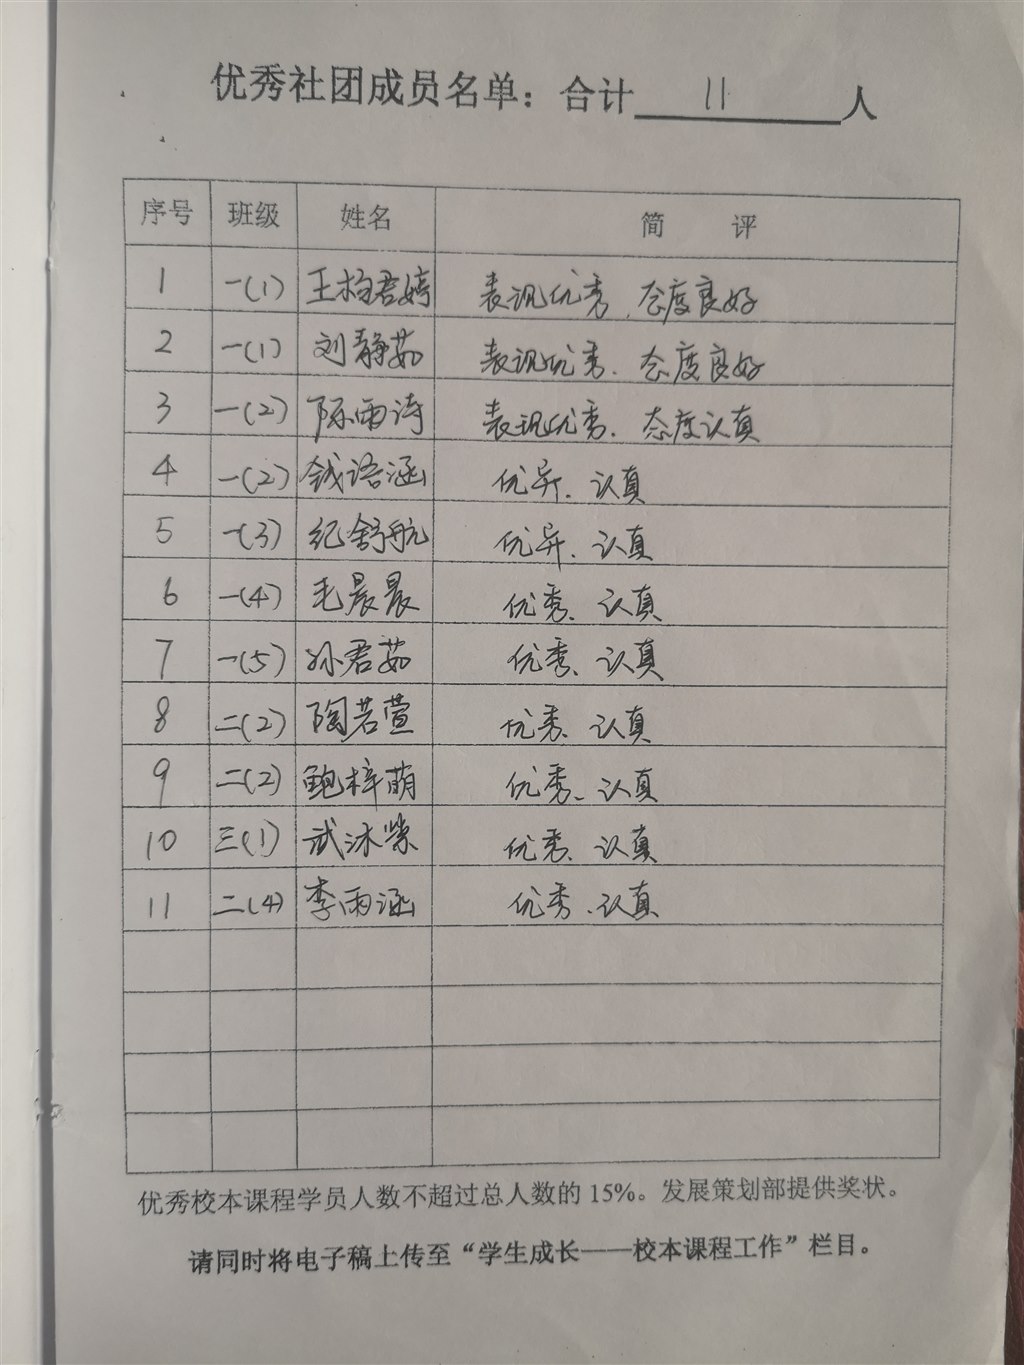 优秀社团成员名单：合计 11 人
序号 班级 姓名 简 评
1 一(1) 王杨君婷 表现优秀、态度良好
2 一(1) 刘静茹 表现优秀、态度良好
3 一(2) 陈雨诗 表现优秀、态度认真
4 一(2) 钱语涵 优异、认真
5 一(3) 纪舒航 优异、认真
6 一(4) 毛晨晨 优秀、认真
7 一(5) 孙君茹 优秀、认真
8 二(2) 陶若萱 优秀、认真
9 二(2) 鲍梓萌 优秀、认真
10 三(1) 武沐紫 优秀、认真
11 二(4) 李雨涵 优秀、认真
优秀校本课程学员人数不超过总人数的 15%。发展策划部提供奖状。
请同时将电子稿上传至“学生成长——校本课程工作”栏目。